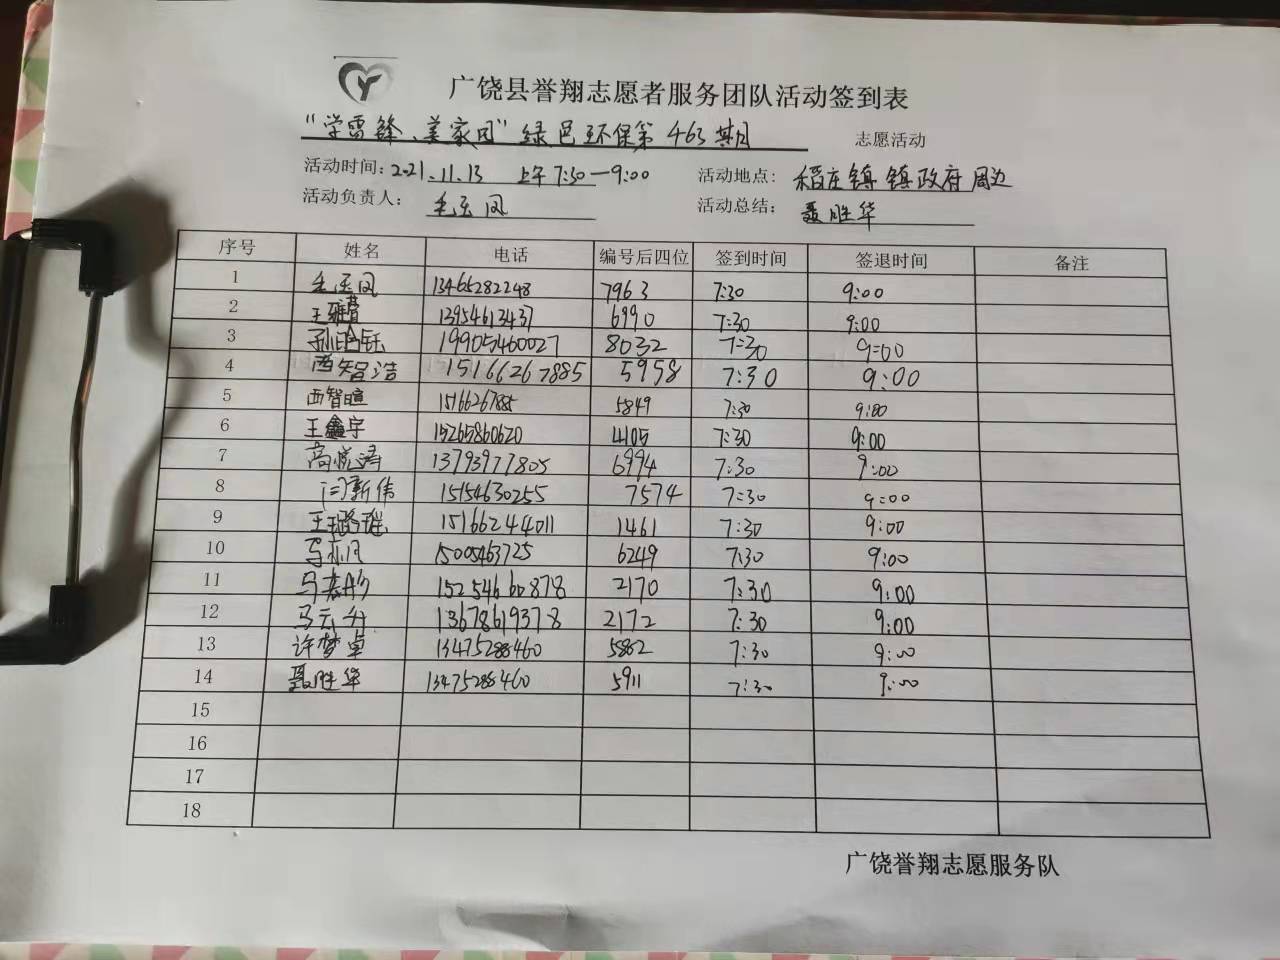 广饶县誉翔志愿者服务团队活动签到表
"学雷锋、美家园"绿色环保第463期 志愿活动
活动时间:2021.11.13 上午7:30—9:00 活动地点:稻庄镇镇政府周边
活动负责人: 活动总结:聂胜华
序号 姓名 电话 编号后四位 签到时间 签退时间 备注
1 13465282248 7963 7:30 9:00
2 13954613437 6990 7:30 9:00
3 19905460027 8032 7:30 9:00
4 西智浩 15166267885 5958 7:30 9:00
5 西智暄 15166267885 5849 7:30 9:00
6 王鑫宇 15265860620 4105 7:30 9:00
7 高悦涛 13793977805 6994 7:30 9:00
8 闫新伟 15154630255 7574 7:30 9:00
9 王璐瑶 15166244011 1461 7:30 9:00
10 15005463725 6249 7:30 9:00
11 15254660878 2170 7:30 9:00
12 马云升 13678619378 2172 7:30 9:00
13 许梦卓 13475288460 5882 7:30 9:00
14 聂胜华 13475288460 5911 7:30 9:00
15
16
17
18
广饶誉翔志愿服务队